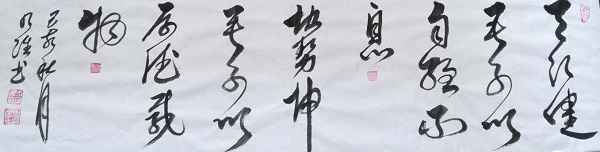 天行健
君子以
自强不
息
地勢坤
君子以
厚德載
物
己亥秋月
书